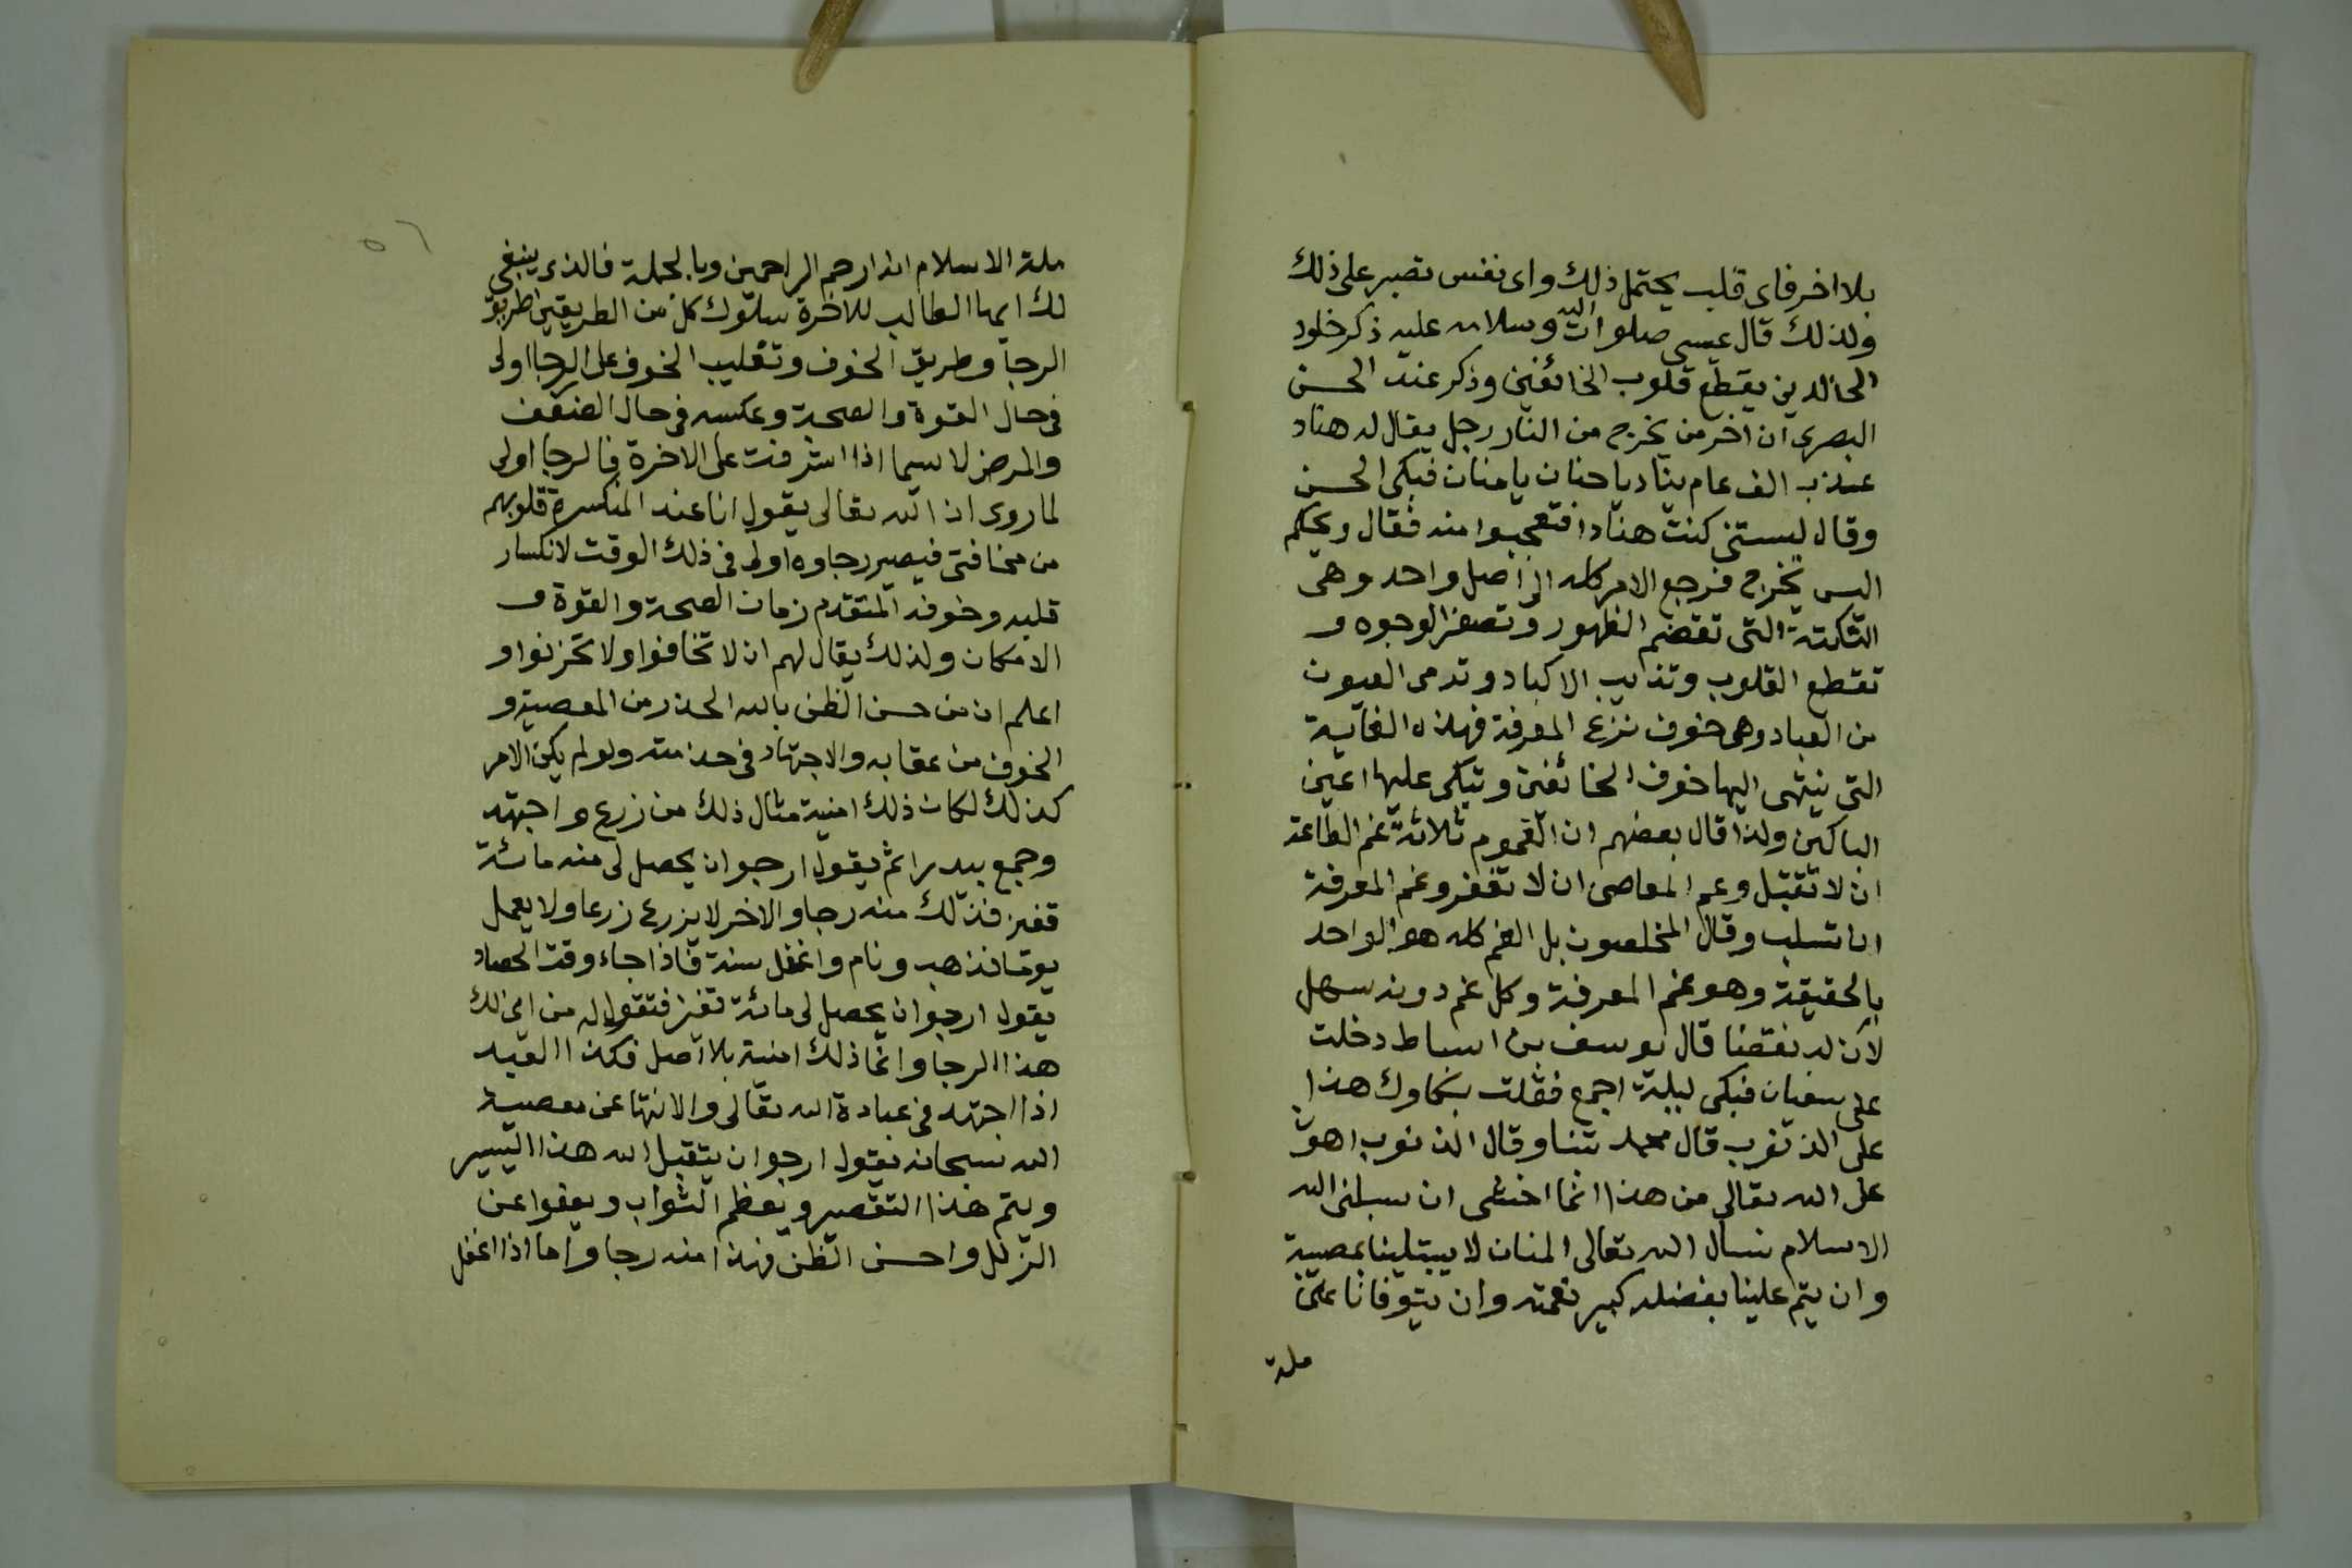 بلا اخر فاى قلب يحتمل ذلك واى نفس تصبر على ذلك
ولذلك قال عيسى صلوات الله وسلامه عليه ذكر خلود
الخالدين يقطع قلوب الخائفين وذكر عند الحسن
البصرى ان اخر من يخرج من النار رجل يقال له هناد
عذب الف عام ينادى يا حنان يا منان فبكى الحسن
وقال ليستنى كنت هنادا فتعجبوا منه فقال ويحكم
اليس يخرج فرجع الامر كله الى اصل واحد وهى
النكتة التى تقضم الظهور وتصفر الوجوه و
تقطع القلوب وتذيب الاكباد وتدمى العيون
من العباد وهى خوف نزع المعرفة فهذه الغاية
التى ينتهى اليها خوف الخائفين وتبكى عليها اعين
الباكين ولذا قال بعضهم ان الغموم ثلاثة غم الطاعة
ان لا تقبل وغم المعاصى ان لا تغفر وغم المعرفة
ان تسلب وقال المخلصون بل الغم كله هو الواحد
بالحقيقة وهو غم المعرفة وكل غم دونه سهل
لان له نقضا قال يوسف بن اسباط دخلت
على سفيان فبكى ليلة اجمع فقلت بكاوك هذا
على الذنوب قال فحمد تبنا وقال الذنوب اهون
على الله تعالى من هذا انما اخشى ان يسلبنى الله
الاسلام نسال الله تعالى المنان لا يبتلينا بمصيبة
وان يتم علينا بفضله كبير نعمته وان يتوفانا على
ملة
٥٦
ملة الاسلام انه ارحم الراحمين وبالجملة فالذى ينبغى
لك ايها الطالب للاخرة سلوك كل من الطريقين طريق
الرجا وطريق الخوف وتغليب الخوف على الرجا اولى
فى حال القوة والصحة وعكسه فى حال الضعف
والمرض لا سيما اذا اشرفت على الاخرة فالرجا اولى
لما روى ان الله تعالى يقول انا عند المنكسرة قلوبهم
من مخافتى فيصير رجاوه اولى فى ذلك الوقت لانكسار
قلبه وخوفه المتقدم زمان الصحة والقوة و
الامكان ولذلك يقال لهم ان لا تخافوا ولا تحزنوا و
اعلم ان من حسن الظن بالله الحذر من المعصية و
الخوف من عقابه والاجتهاد فى خدمته ولو لم يكن الامر
كذلك لكان ذلك امنية مثال ذلك من زرع واجتهد
وجمع بيدرا ثم يقول ارجو ان يحصل لى منه مائة
قفيز فذلك منه رجا والاخر لا يزرع زرعا ولا يعمل
يوما فذهب ونام واغفل سنة فاذا جاء وقت الحصاد
يقول ارجو ان يحصل لى مائة قفيز فتقول له من اين لك
هذا الرجا وانما ذلك امنية بلا اصل فكذا العبد
اذا اجتهد فى عبادة الله تعالى والانتها عن معصية
الله سبحانه يقول ارجو ان يتقبل الله هذا اليسير
ويتم هذا التقصير ويعظم الثواب ويعفوا عن
الزلل واحسن الظن فهذا منه رجا واما اذا اغفل